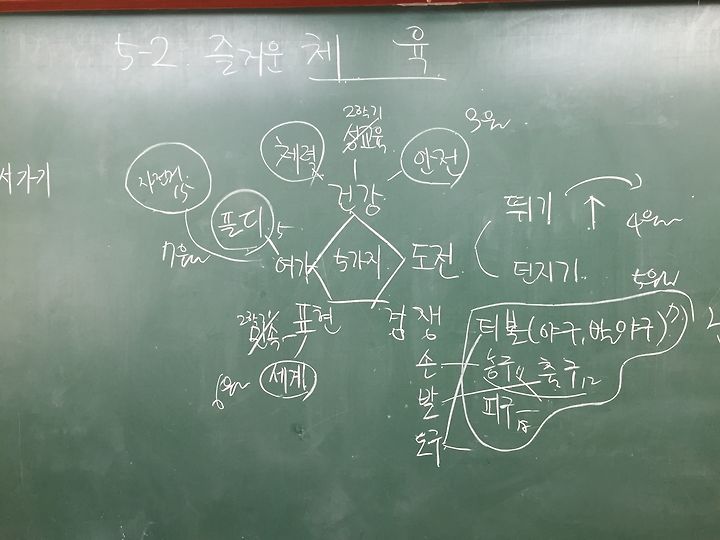 5-2 즐거운 체 육
2학기
성교육
3월
체력
안전
서가기
자전거
15
건강
플.디
15
뛰기
4월
7월
여가
5가지
도전
던지기
5월
2학기
민속
표현
경쟁
티볼(야구, 발야구)
손
농구 11 축구 12
6월
세계
발
피구 18
도구